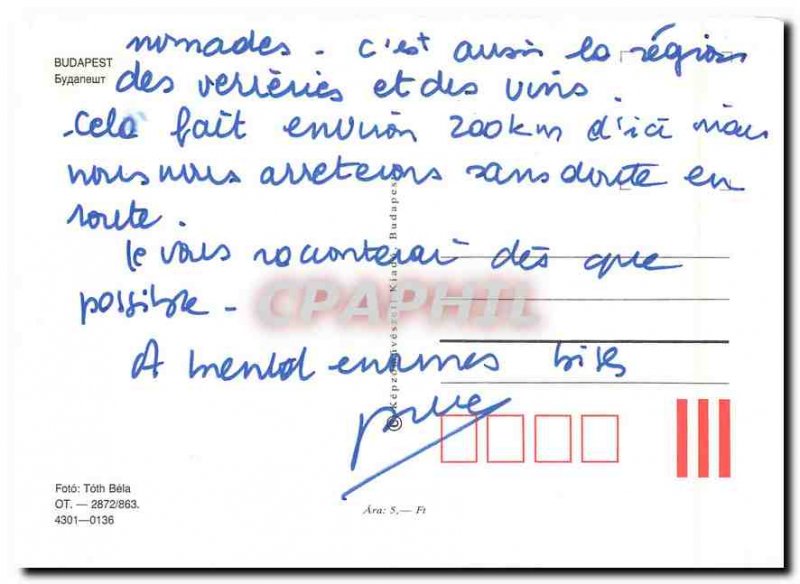 BUDAPEST
Будапешт
nomades. c'est aussi la région
des verrèries et des vins.
Cela fait environ 200km d'ici mais
nous nous arreterons sans doute en
route.
Je vous raconterai dès que
possible -
A bientot enormes bises
© Képzőművészeti Kiadó, Budapest
CPAPHIL
Fotó: Tóth Béla
OT. — 2872/863.
4301—0136
Ára: 5,— Ft